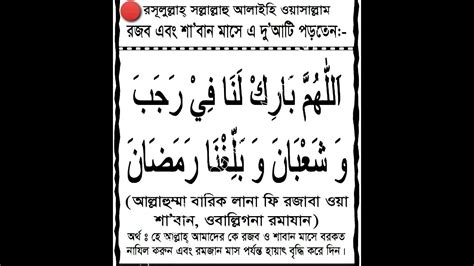 রসূলুল্লাহ্ সল্লাল্লাহু আলাইহি ওয়াসাল্লাম
রজব এবং শা'বান মাসে এ দু'আটি পড়তেন:-
اَللّٰهُمَّ بَارِكْ لَنَا فِيْ رَجَبَ
وَ شَعْبَانَ وَ بَلِّغْنَا رَمَضَانَ
(আল্লাহুম্মা বারিক লানা ফি রজাবা ওয়া
শা'বান, ওবাল্লিগনা রমাযান)
অর্থ ঃ হে আল্লাহ্ আমাদের কে রজব ও শাবান মাসে বরকত
নাযিল করুন এবং রমজান মাস পর্যন্ত হায়াৎ বৃদ্ধি করে দিন।